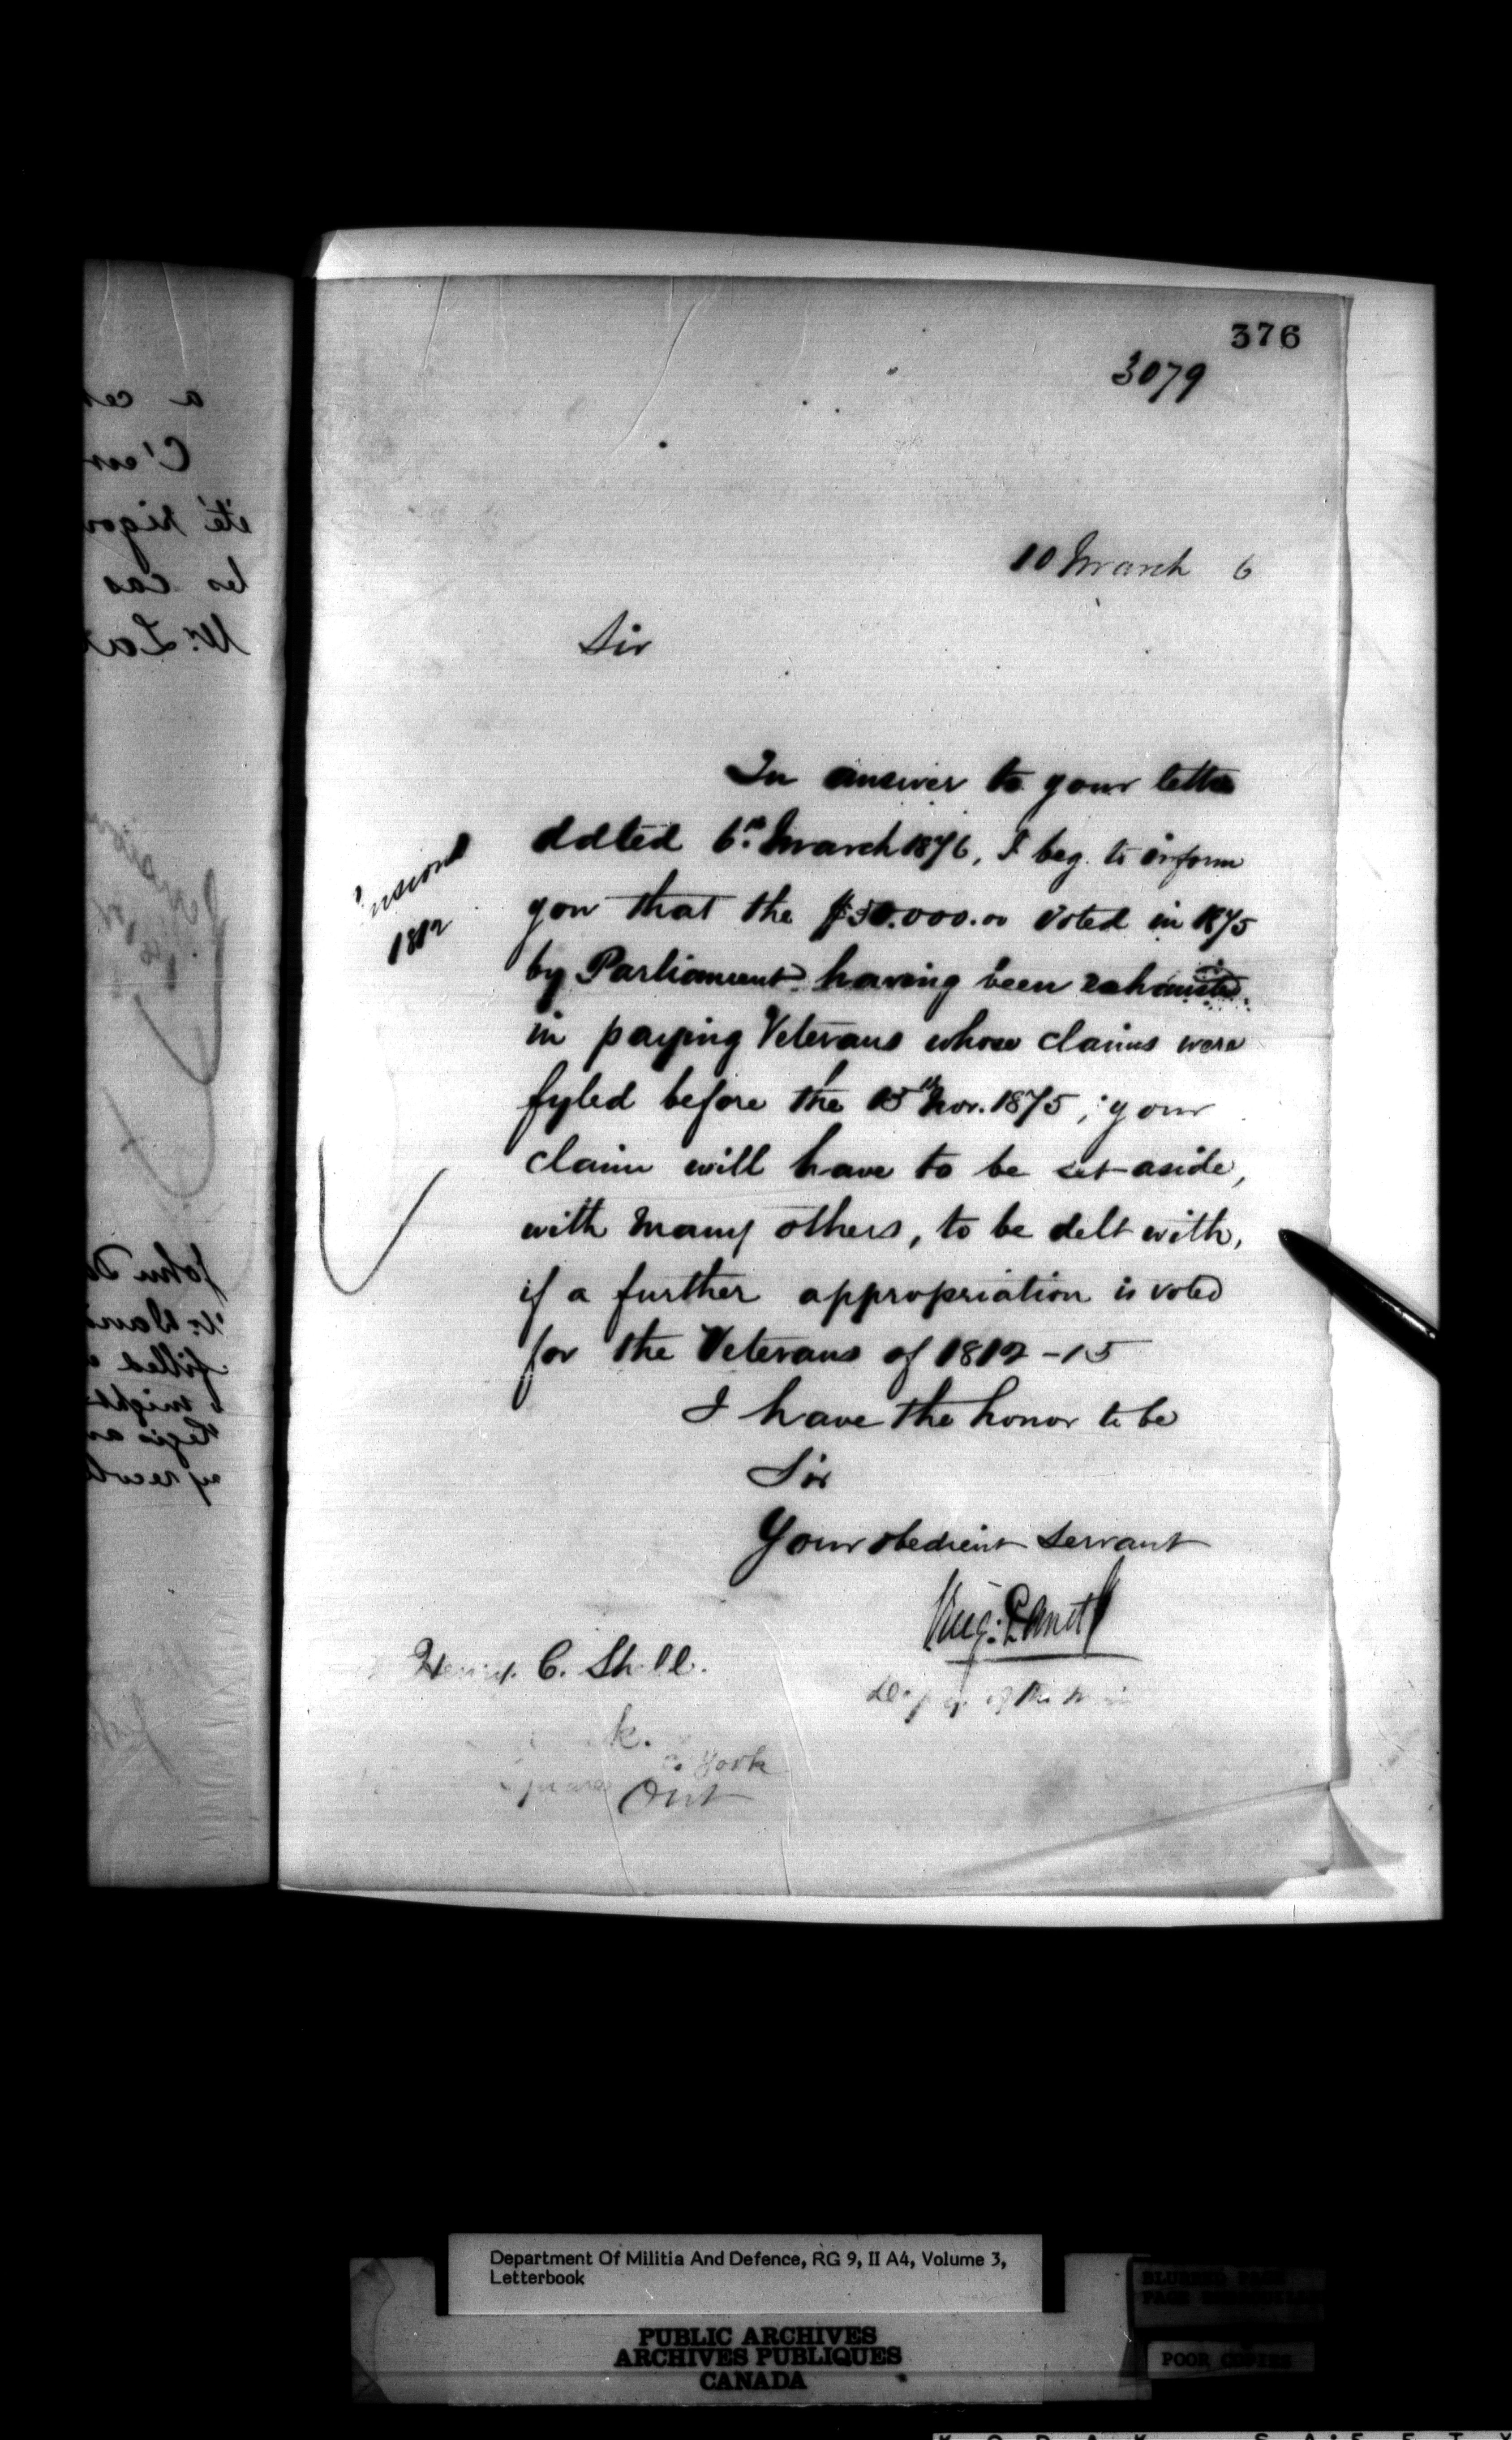 376
3079
10 March 6
Sir
In answer to your letter
dated 6th March 1876, I beg to inform
you that the $50.000.00 voted in 1875
by Parliament having been exhausted
in paying Veterans whose claims were
fyled before the 15th Nov. 1875, your
claim will have to be set aside,
with many others, to be delt with,
if a further appropriation is voted
for the Veterans of 1812-15
I have the honor to be
Sir
Your obedient servant
Panet
Henry. C.
York
Ont
1812
a
C'es
été
les cas
Mr.
John
filled
might
Department Of Militia And Defence, RG 9, II A4, Volume 3,
Letterbook
PUBLIC ARCHIVES
ARCHIVES PUBLIQUES
CANADA
POOR COPIES